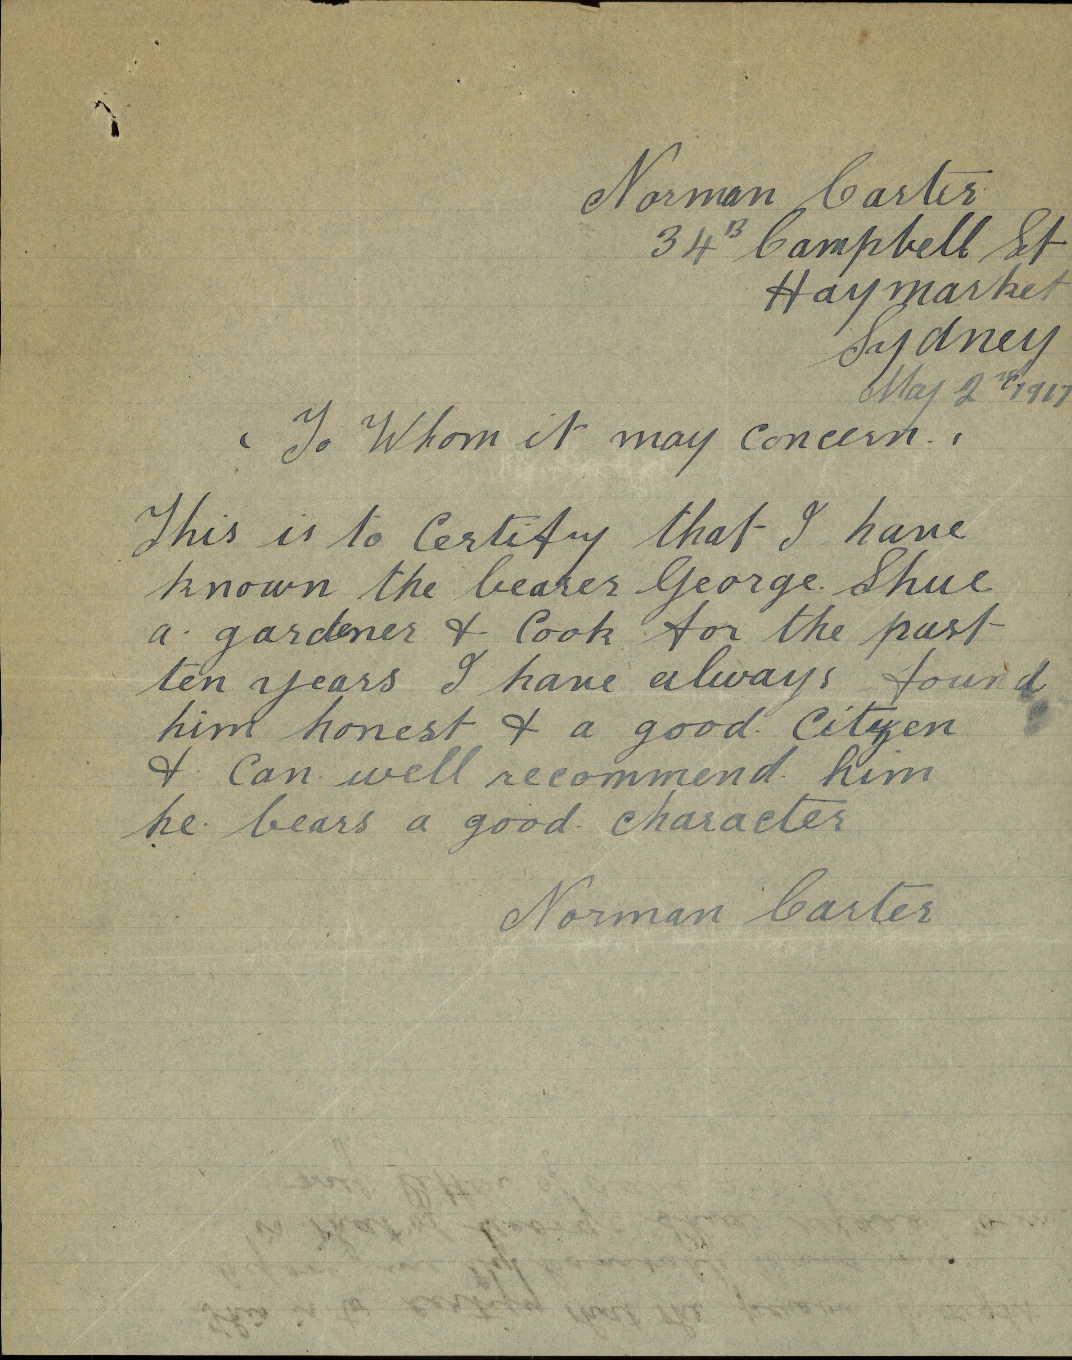 Norman Carter
34B Campbell St
Haymarket
Sydney
May 2nd 1917
To Whom it may concern.
This is to Certify that I have
known the bearer George Shue
a gardener & Cook for the past
ten years I have always found
him honest & a good Citizen
& Can well recommend him
he bears a good character
Norman Carter